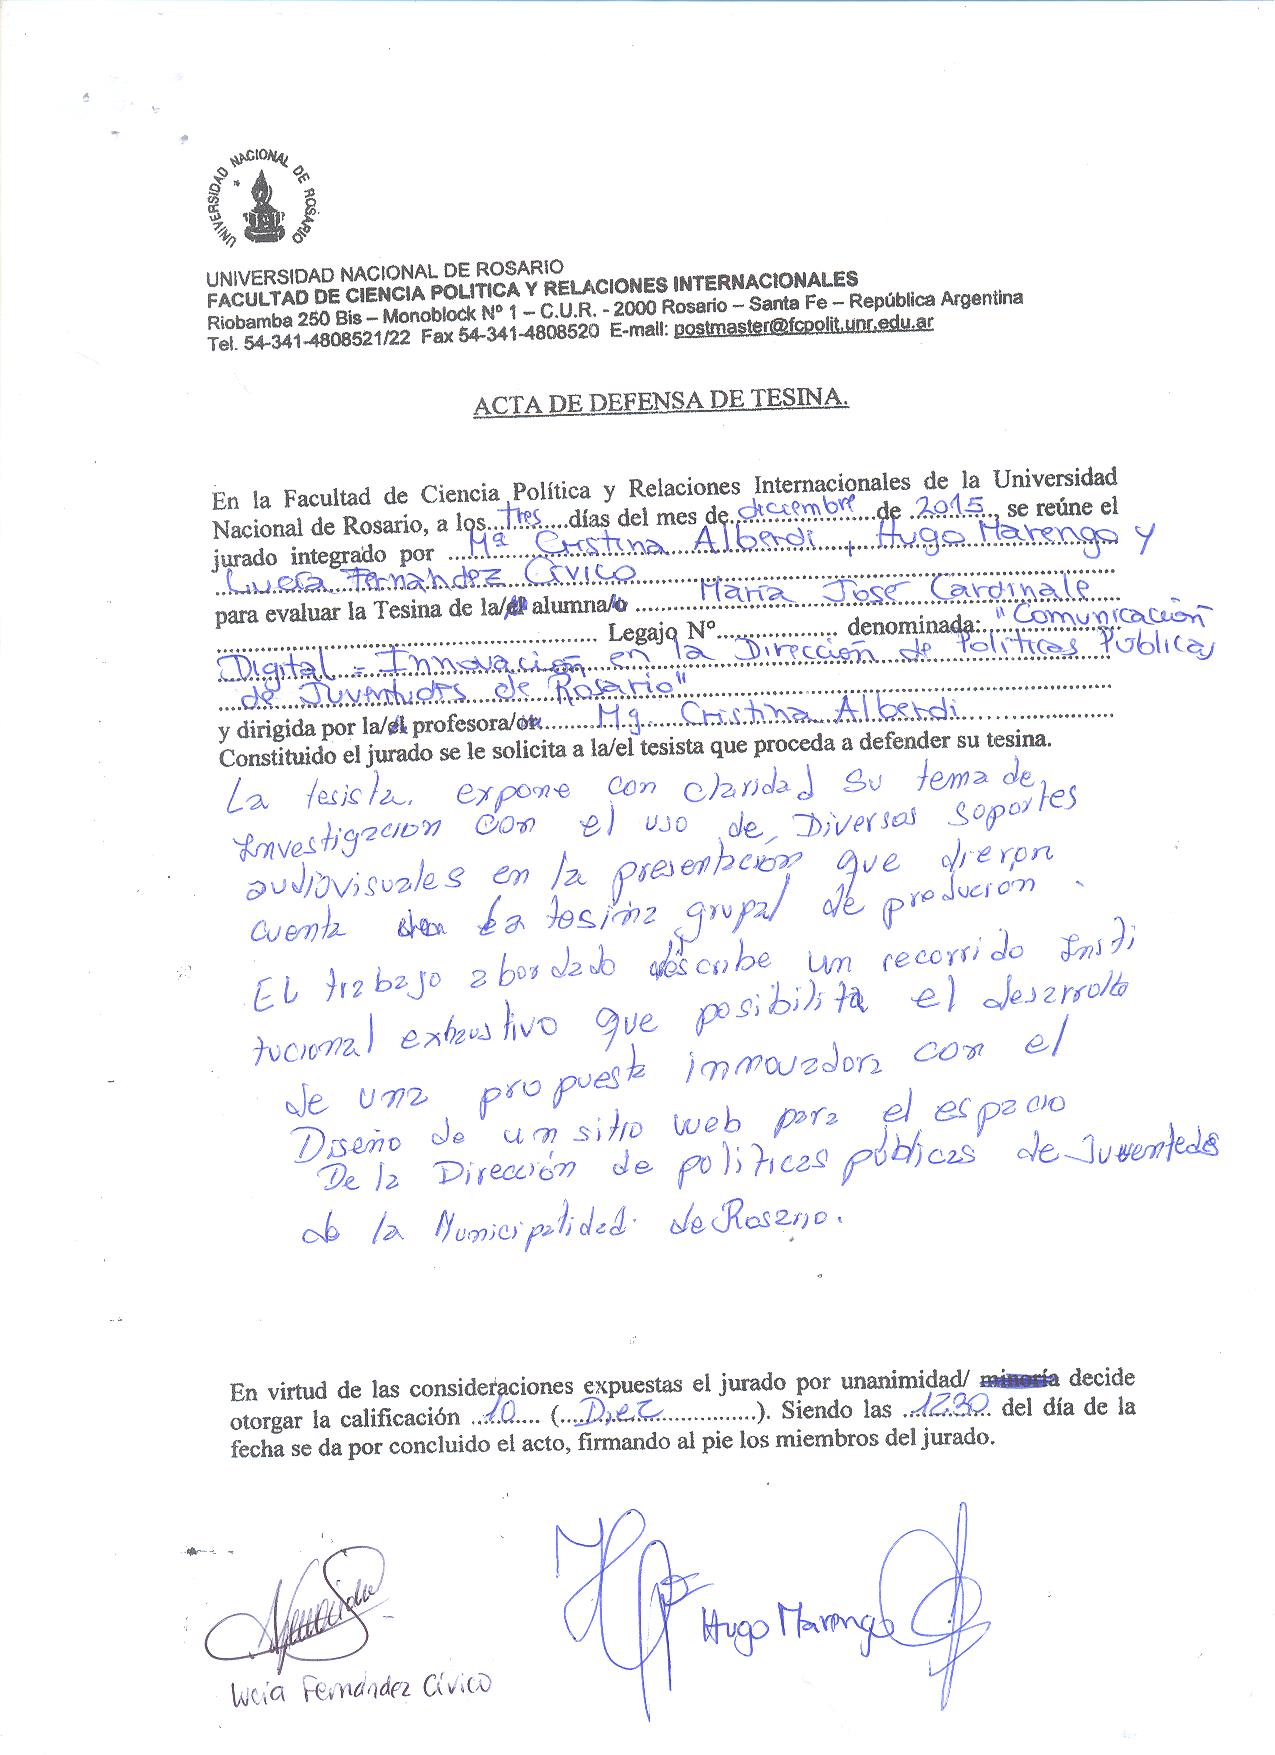 UNIVERSIDAD NACIONAL DE ROSARIO
UNIVERSIDAD NACIONAL DE ROSARIO
FACULTAD DE CIENCIA POLITICA Y RELACIONES INTERNACIONALES
Riobamba 250 Bis – Monoblock Nº 1 – C.U.R. - 2000 Rosario – Santa Fe – República Argentina
Tel. 54-341-4808521/22 Fax 54-341-4808520 E-mail: postmaster@fcpolit.unr.edu.ar
ACTA DE DEFENSA DE TESINA.
En la Facultad de Ciencia Política y Relaciones Internacionales de la Universidad
Nacional de Rosario, a los...tres...días del mes de diciembre de 2015, se reúne el
jurado integrado por Mª Cristina Alberdi, Hugo Marengo y
Lucía Fernandez Cívico
para evaluar la Tesina de la/el alumna/o María José Cardinale
Legajo Nº............... denominada: "Comunicación
Digital = Innovación en la Dirección de Políticas Públicas
de Juventudes de Rosario"
y dirigida por la/el profesora/or Mg. Cristina Alberdi
Constituido el jurado se le solicita a la/el tesista que proceda a defender su tesina.
La tesista. expone con claridad su tema de
Investigacion con el uso de Diversos soportes
audiovisuales en la presentación que dieron
cuenta de la tesina grupal de produción.
EL trabajo abordado describe un recorrido Insti
tucional exhaustivo que posibilita el desarrollo
de una propuesta innovadora con el
Diseño de un sitio web para el espacio
De la Dirección de políticas públicas de Juventudes
de la Municipalidad de Rosario.
En virtud de las consideraciones expuestas el jurado por unanimidad/ minoría decide
otorgar la calificación ...10... (...Diez...). Siendo las ...1230... del día de la
fecha se da por concluido el acto, firmando al pie los miembros del jurado.
Hugo Marengo
Lucía Fernández Cívico